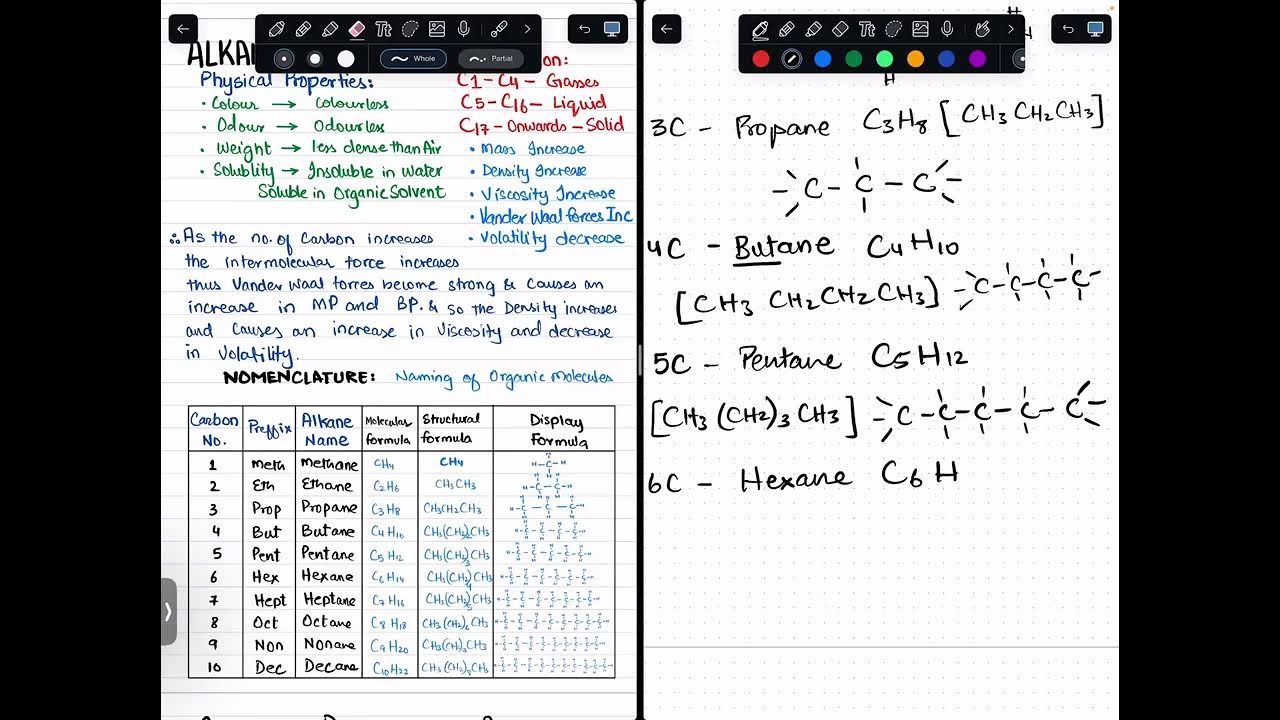 ALKA
on:
Physical Properties:
• Colour → Colourless
• Odour → Odourless
• Weight → less dense than Air
• Solublity → Insoluble in water
Soluble in Organic Solvent
C1 - C4 - Gasses
C5 - C16 - Liquid
C17 - Onwards - Solid
• Mass Increase
• Density Increase
• Viscosity Increase
• Vander Waal forces Inc
• Volatility decrease
∴ As the no. of Carbon increases
the intermolecular force increases
thus Vander Waal forces become strong & Causes an
increase in MP and BP. & so the Density increases
and Causes an increase in Viscosity and decrease
in Volatility.
NOMENCLATURE: Naming of Organic Molecules
Carbon No. Preffix Alkane Name Molecular formula Structural formula Display Formula
1 Meth Methane CH4 CH4
2 Eth Ethane C2H6 CH3CH3
3 Prop Propane C3H8 CH3CH2CH3
4 But Butane C4H10 CH3(CH2)2CH3
5 Pent Pentane C5H12 CH3(CH2)3CH3
6 Hex Hexane C6H14 CH3(CH2)4CH3
7 Hept Heptane C7H16 CH3(CH2)5CH3
8 Oct Octane C8H18 CH3(CH2)6CH3
9 Non Nonane C9H20 CH3(CH2)7CH3
10 Dec Decane C10H22 CH3(CH2)8CH3
Whole
Partial
H
H
H
3C - Propane C3H8 [CH3 CH2 CH3]
C - C - C
4C - Butane C4H10
[CH3 CH2CH2 CH3] - C - C - C - C -
5C - Pentane C5H12
[CH3 (CH2)3 CH3] - C - C - C - C - C -
6C - Hexane C6 H